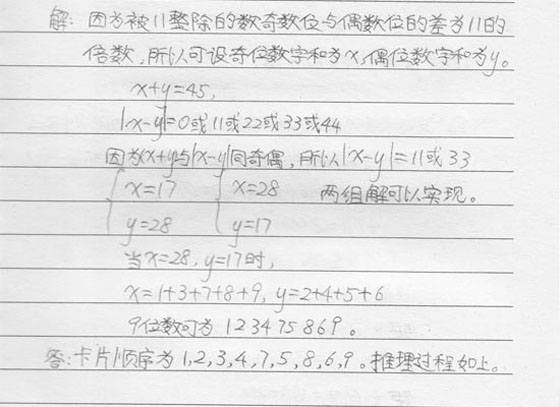 解:因为被11整除的数奇数位与偶数位的差为11的
倍数,所以可设奇位数字和为x,偶位数字和为y。
x+y=45,
|x-y|=0或11或22或33或44
因为x+y与|x-y|同奇偶,所以|x-y|=11或33
{x=17 {x=28 两组解可以实现。
{y=28 {y=17
当x=28,y=17时,
x=1+3+7+8+9,y=2+4+5+6
9位数可为123475869。
答:卡片顺序为1,2,3,4,7,5,8,6,9。推理过程如上。